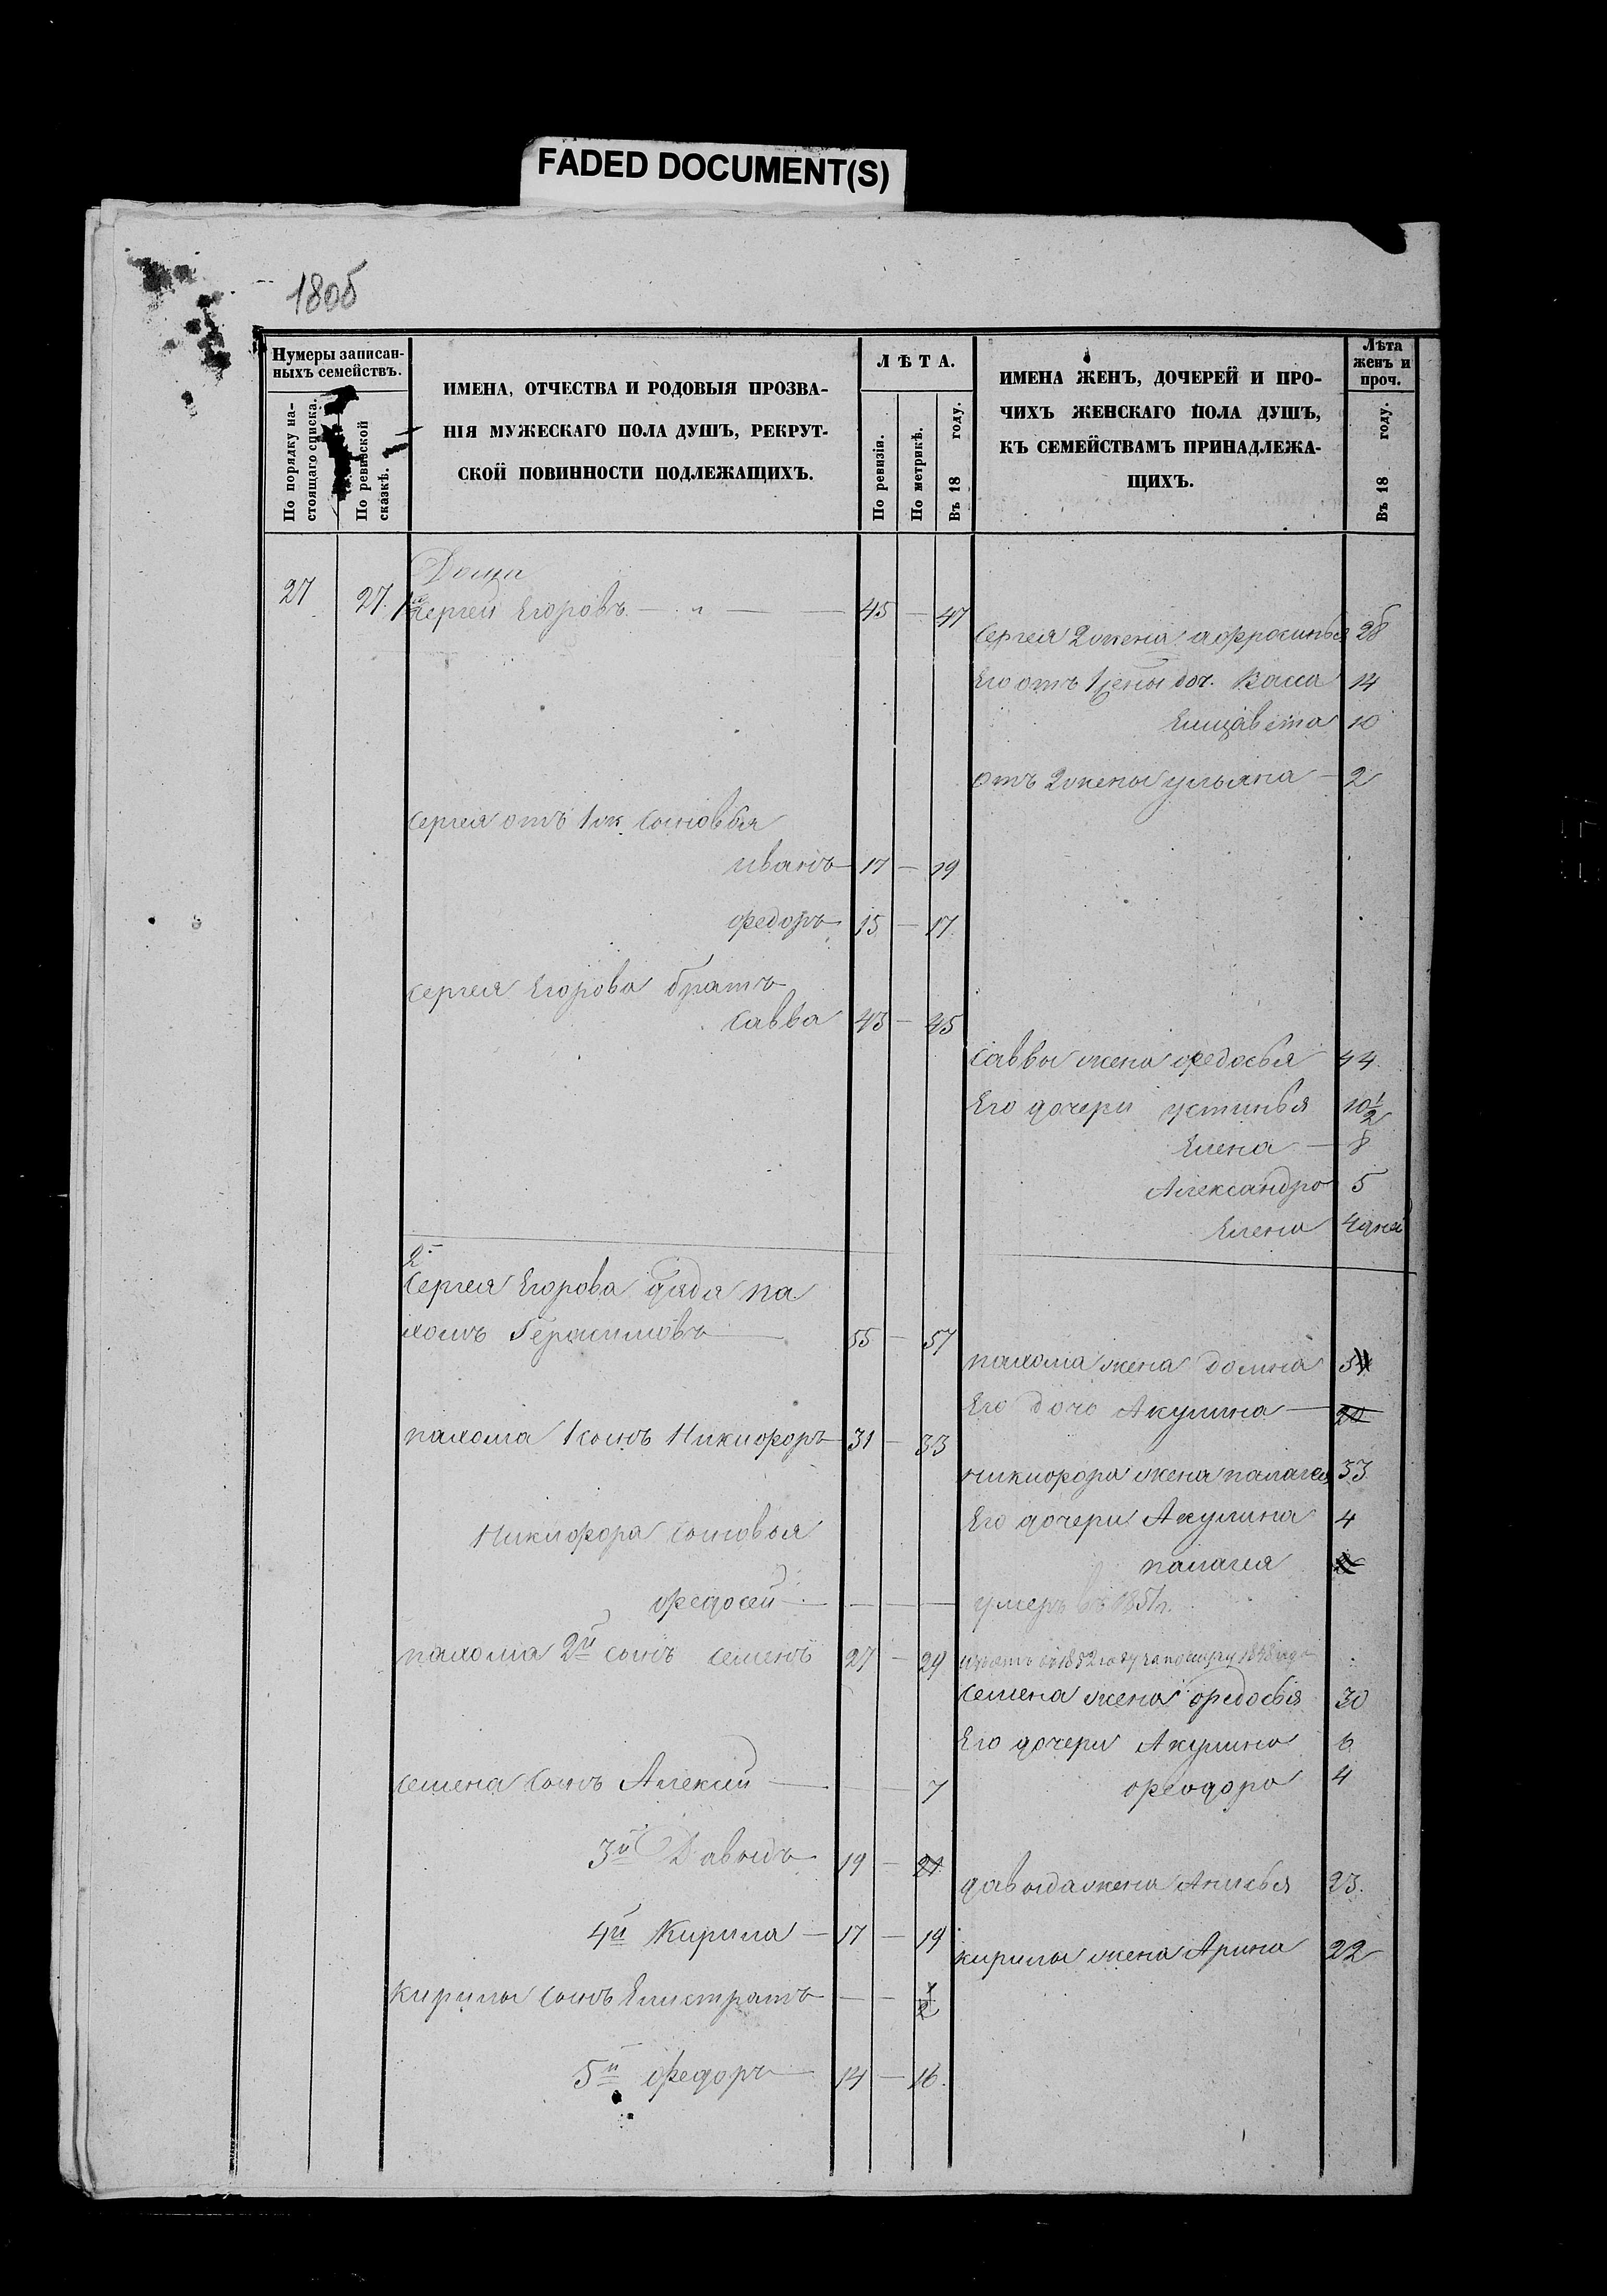 FADED DOCUMENT(S)
180б
Нумеры записан-
ныхъ семействъ.
По порядку на-
стоящаго списка.
По ревизской
сказкѣ.
ИМЕНА, ОТЧЕСТВА И РОДОВЫЯ ПРОЗВА-
НІЯ МУЖЕСКАГО ПОЛА ДУШЪ, РЕКРУТ-
СКОЙ ПОВИННОСТИ ПОДЛЕЖАЩИХЪ.
ЛѢТА.
По ревизіи.
По метрикѣ.
Въ 18 году.
ИМЕНА ЖЕНЪ, ДОЧЕРЕЙ И ПРО-
ЧИХЪ ЖЕНСКАГО ПОЛА ДУШЪ,
КЪ СЕМЕЙСТВАМЪ ПРИНАДЛЕЖА-
ЩИХЪ.
Лѣта
женъ и
проч.
Въ 18 году.
27 27. Сергей Егоровъ — 45 — 47
Сергея 2 жена афросинья 28
Его отъ 1 жены доч. Васса 14
Елизавета 10
отъ 2 жены ульяна — 2
Сергея отъ 1 ж. Сыновья
иванъ 17 — 19
федоръ 15 — 17.
Сергея Егорова братъ
Савва 43 — 45
Саввы жена федосья 44
Его дочери устинья 10 1/2
Елена — 8
Александра 5
Елена 4 дней
2
Сергея Егорова дядя па
хомъ Герасимовъ 55 — 57
пахома жена домна
Его дочь Акулина — 20
пахома 1 сынъ Никифоръ 31 — 33
никифора жена палагея 33
Его дочери Акулина 4
Никифора Сыновья
палагея
федосей — — —
умеръ въ 1851 г.
пахома 2й сынъ семенъ 27 — 29
Семена жена федосья 30
Его дочери Акулина 6
Семена Сынъ Алексей — — 7
феодора 4
3й Давыдъ 19 — 21
давыда жена Анисья 23.
4й Кирила — 17 — 19
кирилы жена Арина 22
Кирилы Сынъ Елистратъ — — 1/2
5й федоръ 14 — 16.